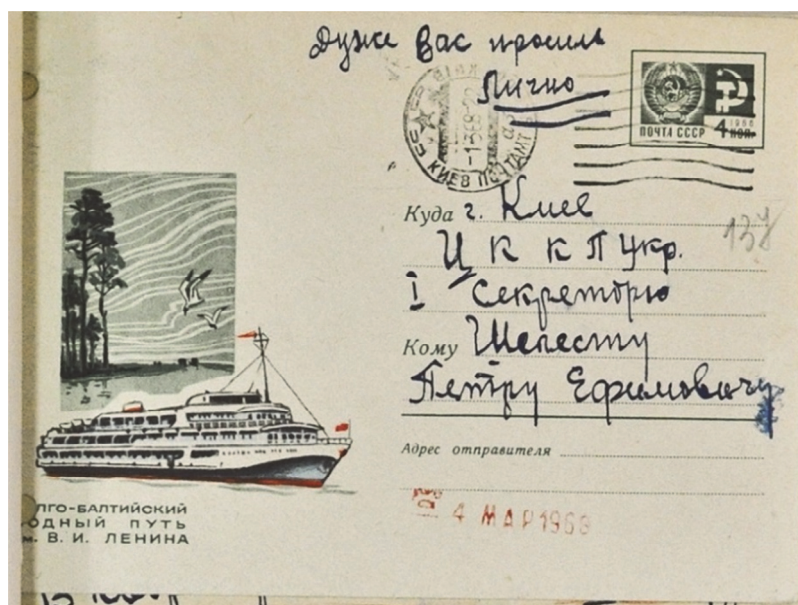 Дуже вас просимь
Лично
-1368-22
КИЕВ ПОЧТАМТ
1966
4 коп.
ПОЧТА СССР
Куда г. Киев
ЦК КП Укр.
I Секреторю
Кому Шелесту
Петру Ефимовичу
137
Адрес отправителя
4 МАР 1968
ЛГО-БАЛТИЙСКИЙ
ОДНЫЙ ПУТЬ
м. В. И. ЛЕНИНА